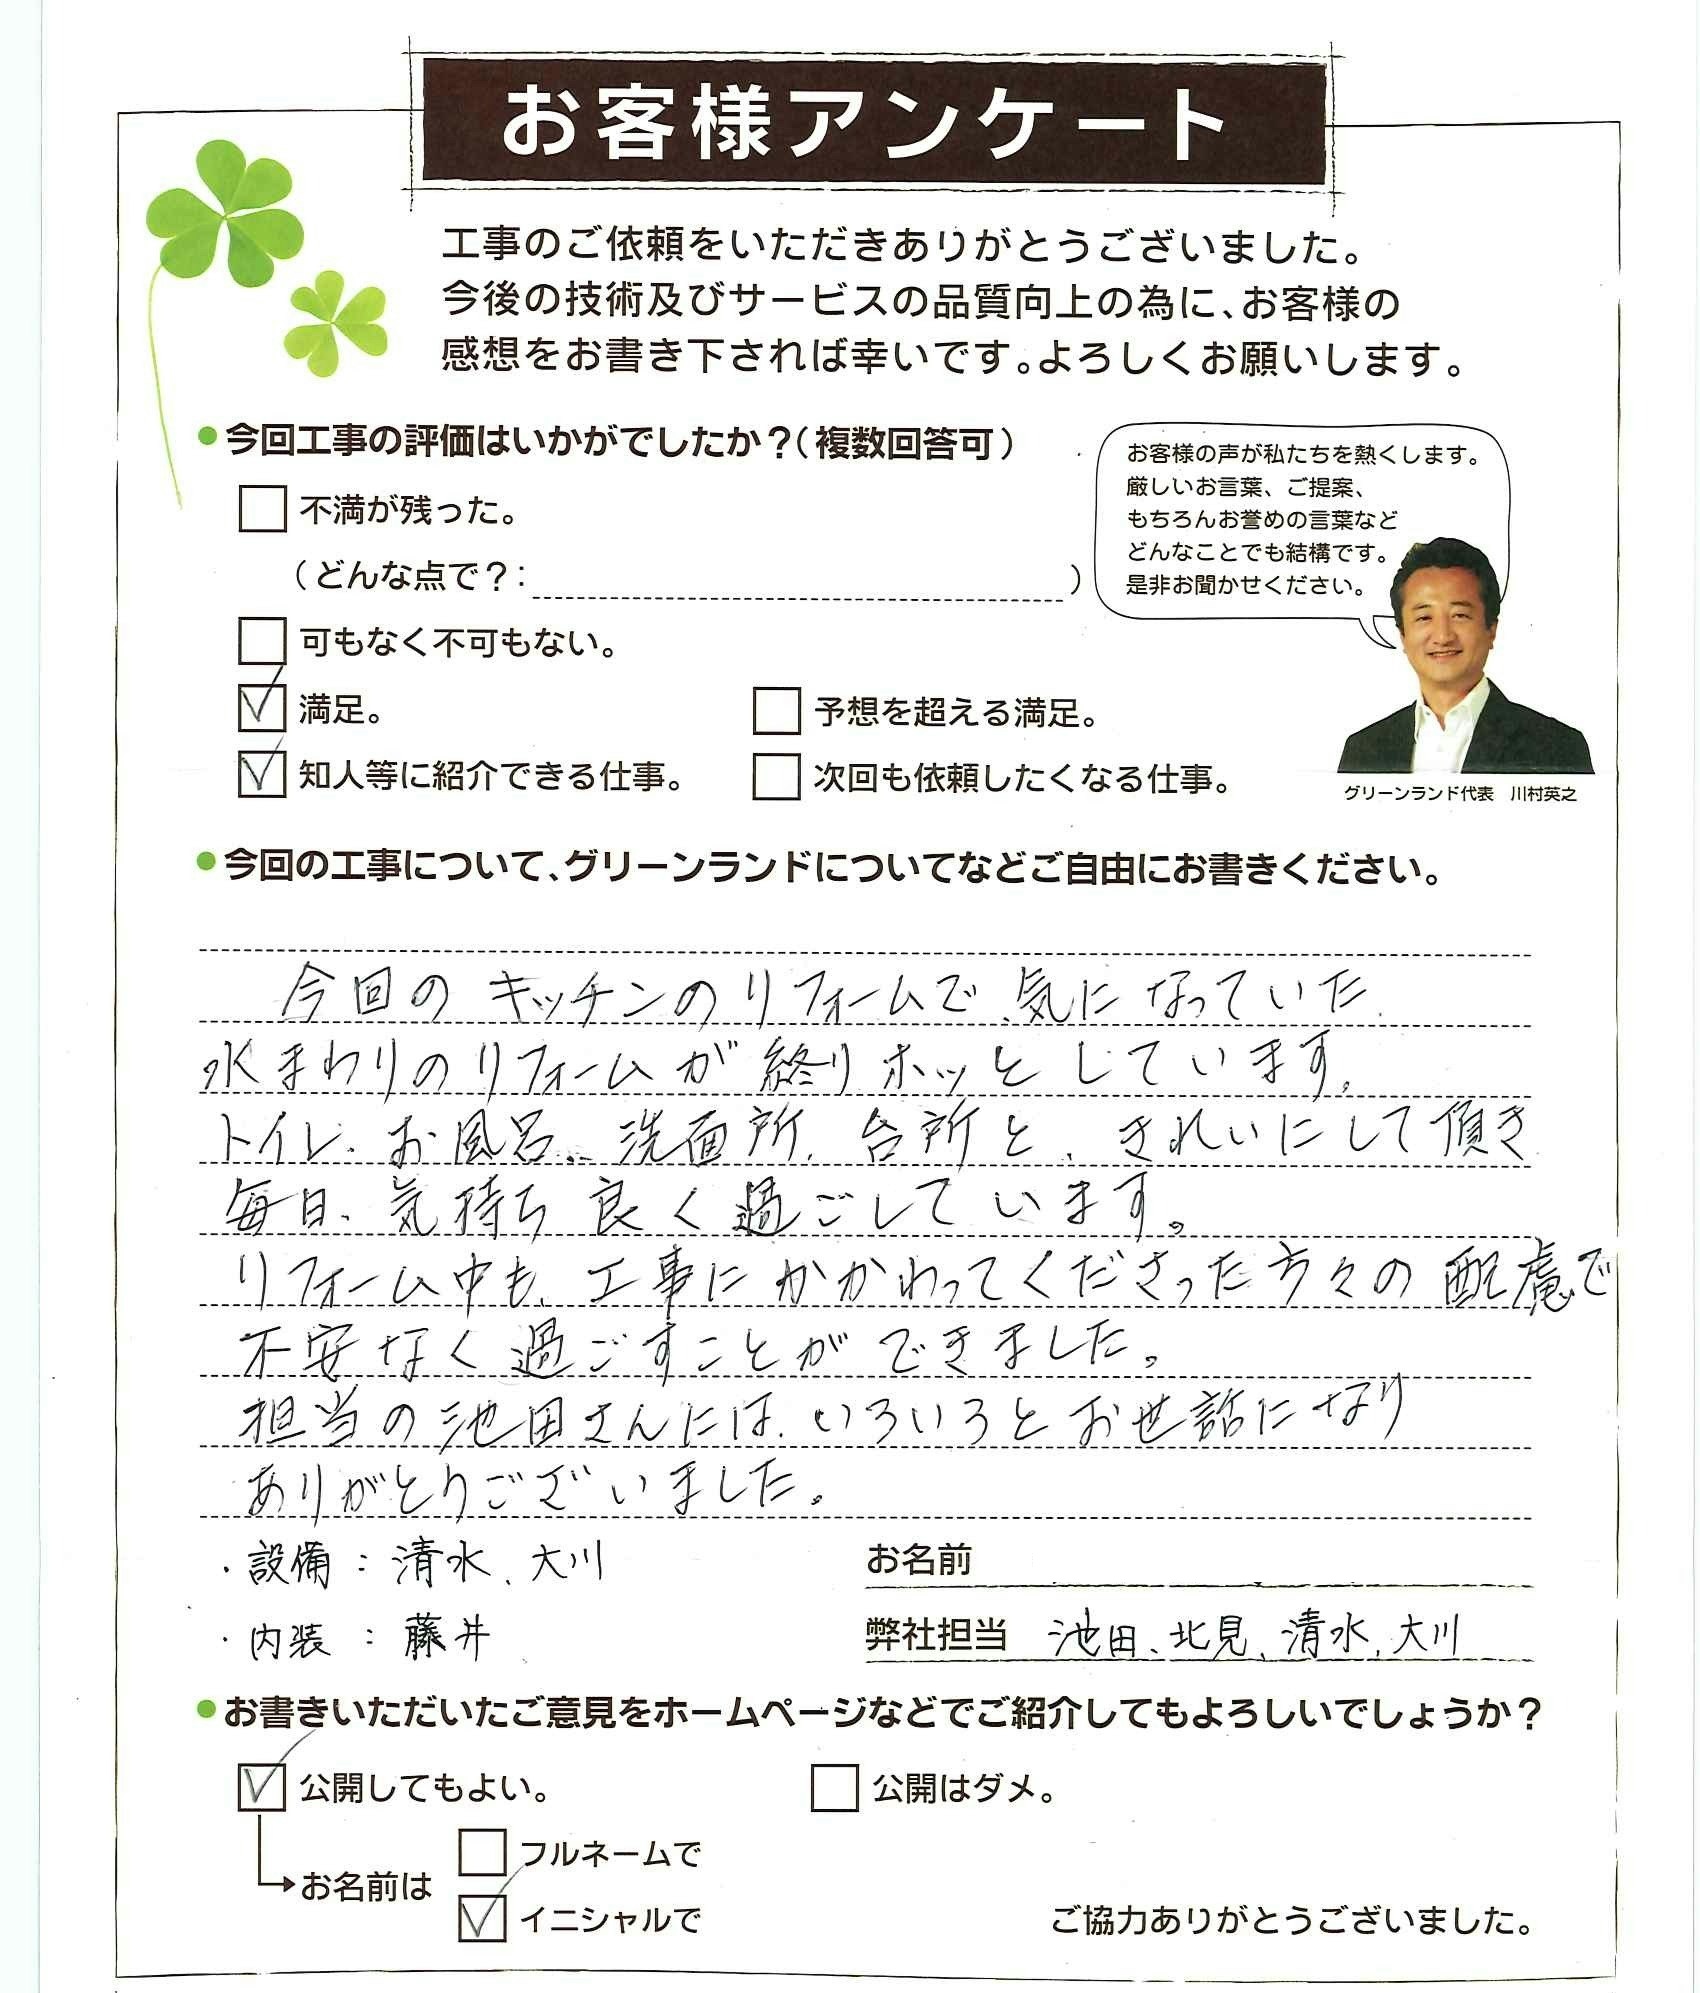 お客様アンケート
工事のご依頼をいただきありがとうございました。
今後の技術及びサービスの品質向上の為に、お客様の
感想をお書き下されば幸いです。よろしくお願いします。
今回工事の評価はいかがでしたか？(複数回答可)
不満が残った。
(どんな点で？: )
可もなく不可もない。
満足。
予想を超える満足。
知人等に紹介できる仕事。
次回も依頼したくなる仕事。
お客様の声が私たちを熱くします。
厳しいお言葉、ご提案、
もちろんお誉めの言葉など
どんなことでも結構です。
是非お聞かせください。
グリーンランド代表 川村英之
今回の工事について、グリーンランドについてなどご自由にお書きください。
今回のキッチンのリフォームで、気になっていた
水まわりのリフォームが終りホッとしています。
トイレ、お風呂、洗面所、台所と、きれいにして頂き
毎日、気持ち良く過ごしています。
リフォーム中も、工事にかかわってくださった方々の配慮で
不安なく過ごすことができました。
担当の池田さんには、いろいろとお世話になり
ありがとうございました。
・設備：清水、大川
・内装：藤井
お名前
弊社担当 池田、北見、清水、大川
お書きいただいたご意見をホームページなどでご紹介してもよろしいでしょうか？
公開してもよい。
公開はダメ。
お名前は
フルネームで
イニシャルで
ご協力ありがとうございました。